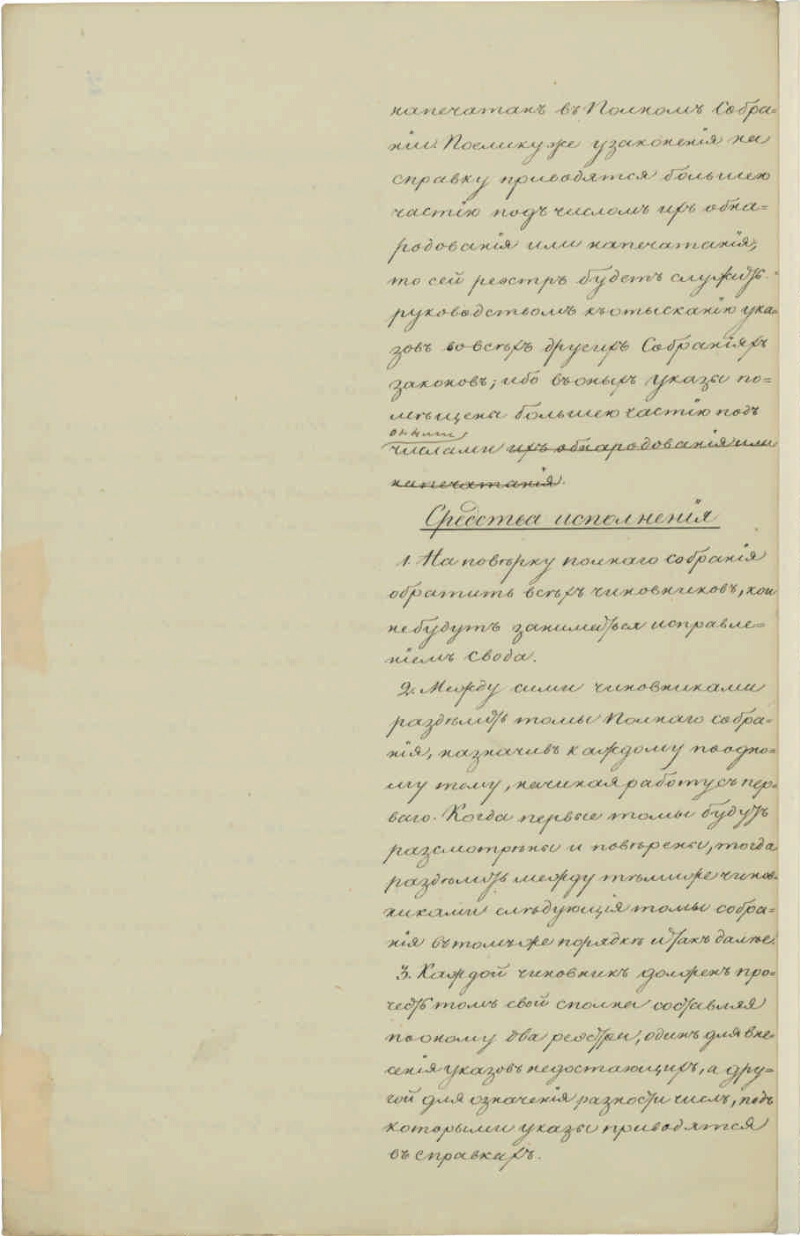 напечатанъ въ Полномъ Собра=
ніи. Поелику же узаконенія на
справку приводятся большею
частію подъ числомъ ихъ обна=
родованія или напечатанія,
то сей реэстръ будетъ служить
руководствомъ къ отысканію ука=
зовъ во всѣхъ другихъ Собраніяхъ
законовъ; ибо въ оныхъ указы по=
мѣщены большею частію подъ
оными
числами ихъ обнародованія или
напечатанія.
Средства исполненія
1. На повѣрку полнаго собранія
обратить всѣхъ чиновниковъ, кои
не будутъ заниматься исправле=
ніемъ свода.
2. Между сими чиновниками
раздѣлить томы Полнаго собра=
нія, назначивъ каждому по одно=
му тому, начиная работу съ пер=
ваго. Когда первые томы будутъ
разсмотрѣны и повѣрены, тогда
раздѣлить между тѣми же чинов=
никами слѣдующія томы собра=
нія въ томъ же порядкѣ и такъ далѣе.
3. Каждой чиновникъ долженъ про=
честь томъ свой сполна составляя
по оному два реэстра, одинъ для вне=
сенія указовъ недостающихъ, а дру=
гой для означенія разности чиселъ, подъ
которыми указы приводятся
въ справкахъ.